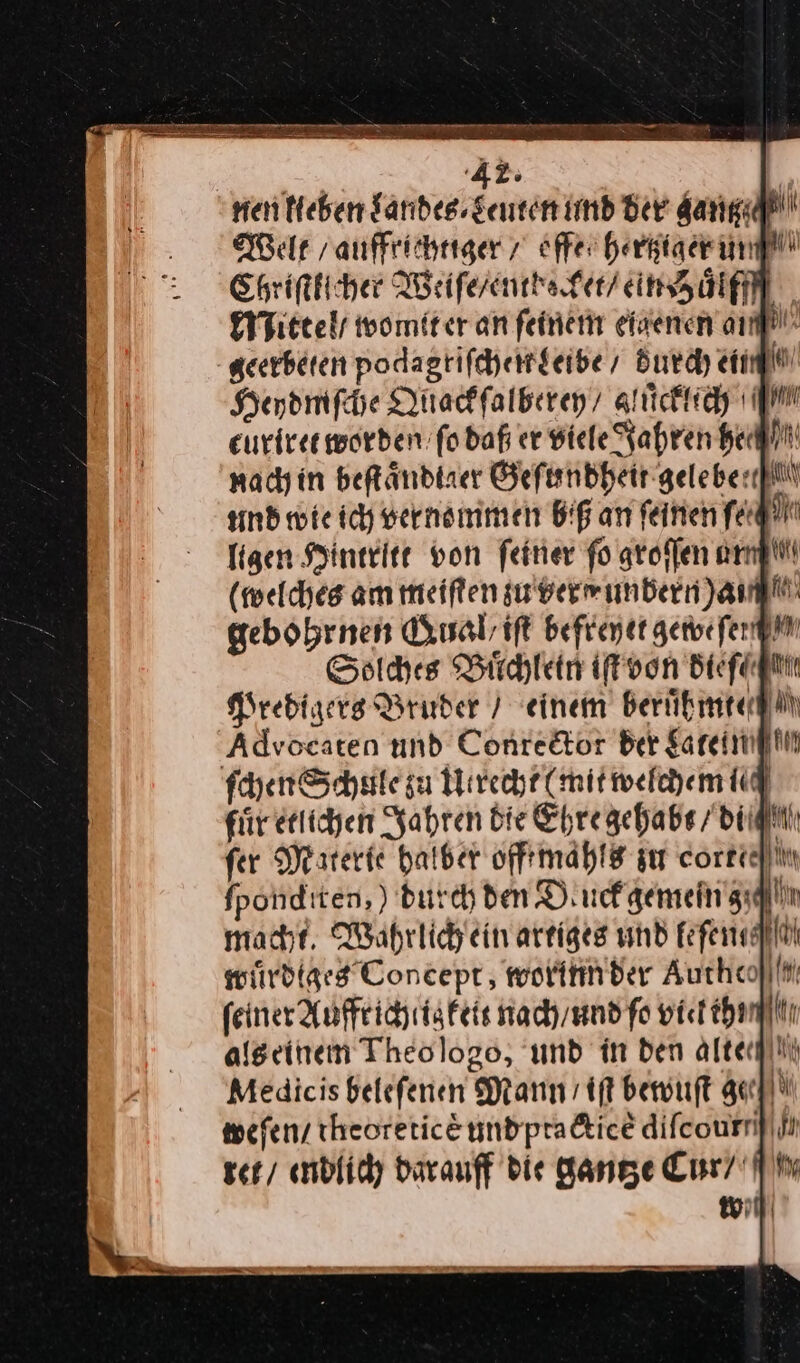 42.
nen lieben Landes-Leuten und der gantz
Welt / auffrichtiger / offenhertziger un
Christlicher Weise/entdecket/ ein Hülff
Mittel/ womit er an seinem eigenen an
geerbeten podagrischen Leibe / durch ein
Heydnische Quacksalberey / glücklich
curiret worden/ so daß er viele Jahren her
nach in beständiger Gesundheit gelebet
und wie ich vernommen biß an seinen see
ligen Hintritt von seiner so grossen um
(welches am meisten zu verwundern) an
gebohrnen Qual / ist befreyet gewesen
Solches Büchlein ist von diese
Predigers Bruder / einem berühmte
Advocaten und Conrector der Latein
schen Schule zu Utrecht (mit welchem ic
für etlichen Jahren die Ehre gehabt / di
ser Materie halber offtmahls zu corre
spondiren,) durch den Druck gemein ge
macht. Wahrlich ein artiges und lesens
würdiges Concept, worinn der Autho
seiner Auffrichtigkeit nach/und so viel ihm
als einem Theologo, und in den alte
Medicis belesenen Mann / ist bewust ge
wesen/ theoreticè und practicè discour
ret / endlich darauff die gantze Cur /